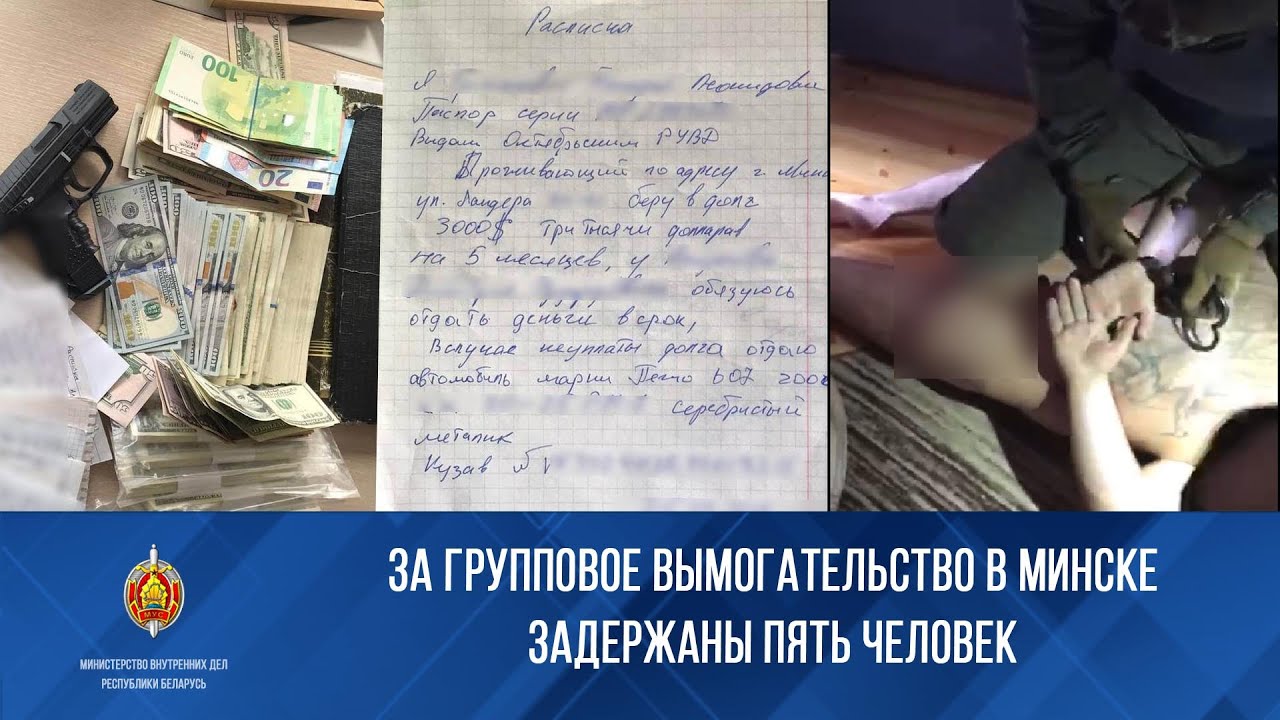 100
EURO
20
100
Расписка
Я Леонидови
Паспор серии
Выдан Октябрьским РУВД
Проживающий по адресу г. Минс
ул. Ландера беру в долг
3000$ три тысячи долларав
на 5 месяцев, у
обязуюсь
отдать деньги в срок,
Вслучае неуплаты долга отдаю
автомобиль марки Пежо 607 200
серебристый
металик
Кузав №
МУС
МИНИСТЕРСТВО ВНУТРЕННИХ ДЕЛ
РЕСПУБЛИКИ БЕЛАРУСЬ
ЗА ГРУППОВОЕ ВЫМОГАТЕЛЬСТВО В МИНСКЕ
ЗАДЕРЖАНЫ ПЯТЬ ЧЕЛОВЕК